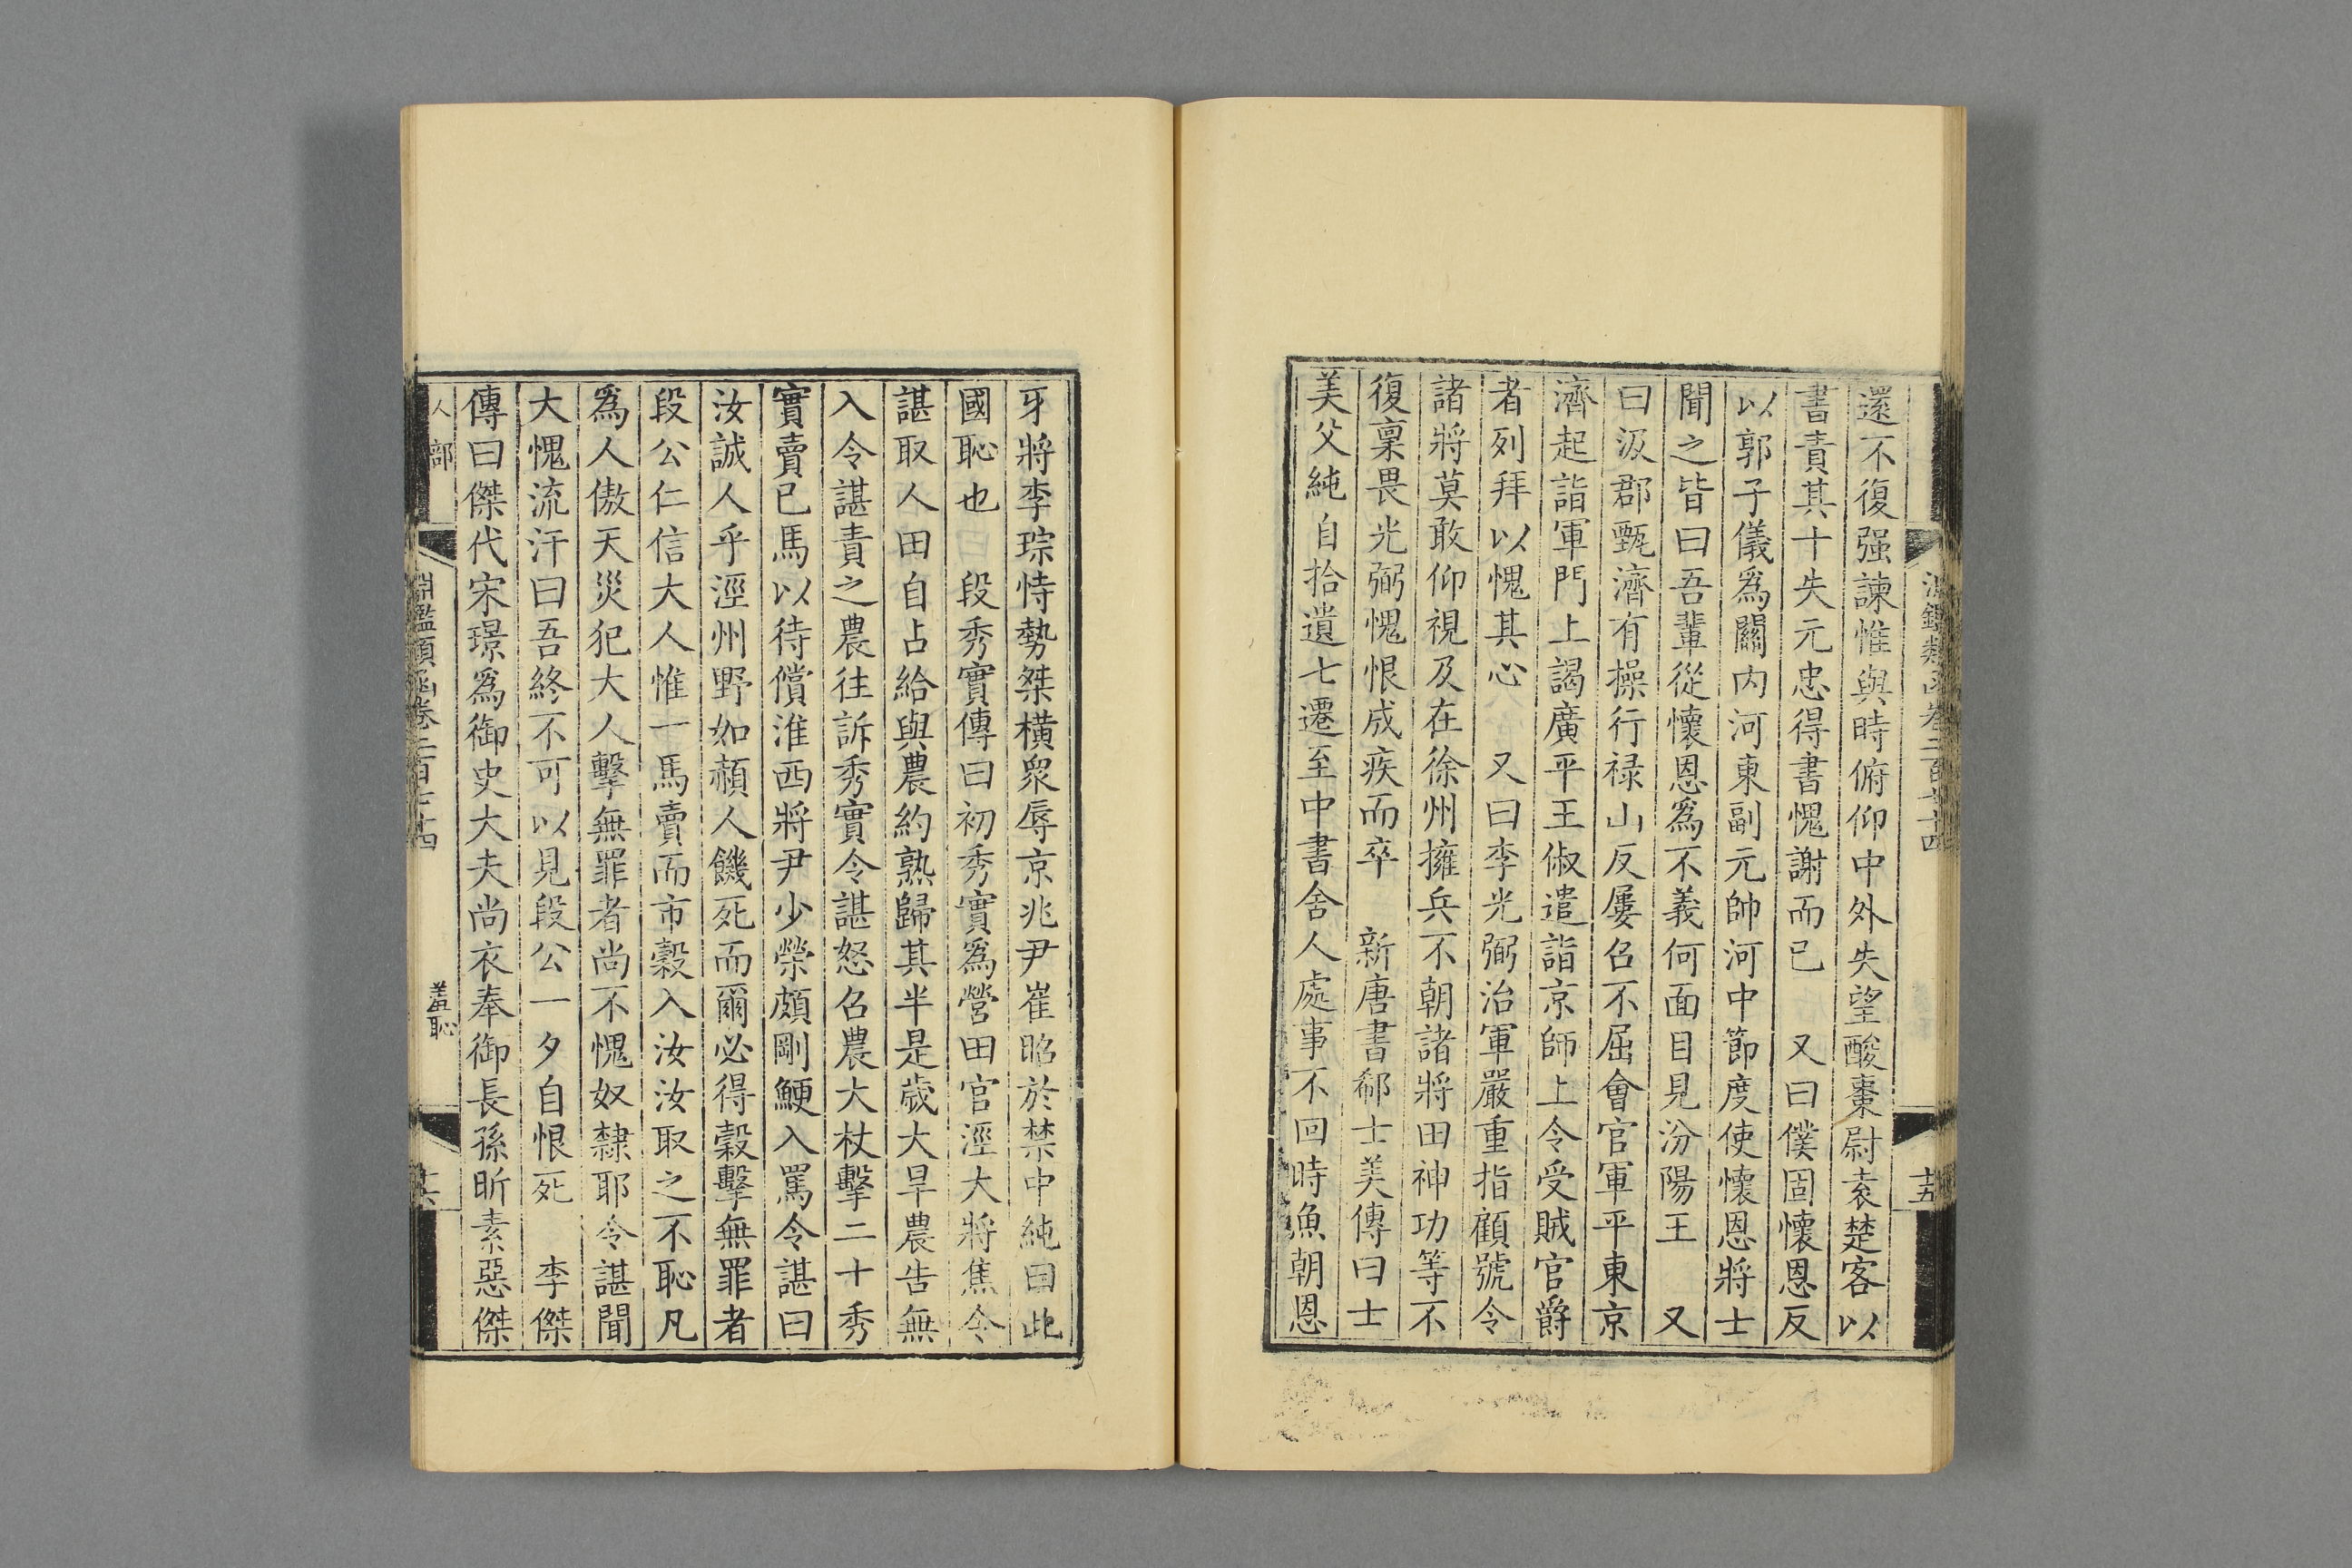 還不復强諫惟與時俯仰中外失望酸棗尉袁楚客以
書責其十失元忠得書愧謝而已　又曰僕固懷恩反
以郭子儀爲關内河東副元帥河中節度使懷恩將士
聞之皆曰吾輩從懷恩爲不義何面目見汾陽王　又
曰汲郡甄濟有操行禄山反屢召不屈會官軍平東京
濟起詣軍門上謁廣平王俶遣詣京師上令受賊官爵
者列拜以愧其心　又曰李光弼治軍嚴重指顧號令
諸將莫敢仰視及在徐州擁兵不朝諸將田神功等不
復稟畏光弼愧恨成疾而卒　新唐書郗士美傳曰士
美父純自拾遺七遷至中書舍人處事不回時魚朝恩
牙將李琮恃勢桀橫衆辱京兆尹崔昭於禁中純曰此
國恥也　段秀實傳曰初秀實爲營田官涇大將焦令
諶取人田自占給與農約熟歸其半是歲大旱農告無
入令諶責之農往訴秀實令諶怒召農大杖擊二十秀
實賣已馬以待償淮西將尹少榮頗剛鯁入罵令諶曰
汝誠人乎涇州野如赬人饑死而爾必得穀擊無罪者
段公仁信大人惟一馬賣而市穀入汝汝取之不恥凡
爲人傲天災犯大人擊無罪者尚不愧奴隸耶令諶聞
大愧流汗曰吾終不可以見段公一夕自恨死　李傑
傳曰傑代宋璟爲御史大夫尚衣奉御長孫昕素惡傑
人部
淵鑑類函卷二百七十四
羞恥
十六
淵鑑類函卷二百七十四
十五